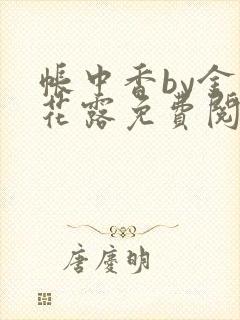 帳中香by金
花露免費閱
唐慶明